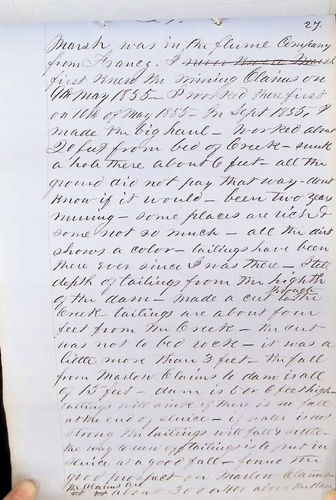 27.
Marsh, was in the flume Company
from France. I never knew a Marsh
first knew the mining Claims on
9th May 1855 - I worked there first
on 10th of May 1855 - In Sept 1855, I
made the big haul - worked about
20 feet from bed of Creek - sunk
a hole there about 6 feet - all the
ground did not pay that way - dont
know if it would - been two years
mining - some places are richer &
some not so much - all the dirt
shows a color - tailings have been
there ever since I was there -
depth of tailings from the highth
of the dam - made a cut through the
Creek - tailings are about four
feet from the Creek - the cut
was not to bed rock - it was a
little more than 3 feet - the fall
from Marlow Claims to dam is all
of 15 feet - dam is 5 or 6 feet high -
tailings will sink if there is no fall
at the end of sluice - if water is not
strong the tailings will fall & settle -
the way to run off tailings is to put in
sluice at a good fall - found the
good prospect on Marlow Claims
the Claims about 30 or 40 above the